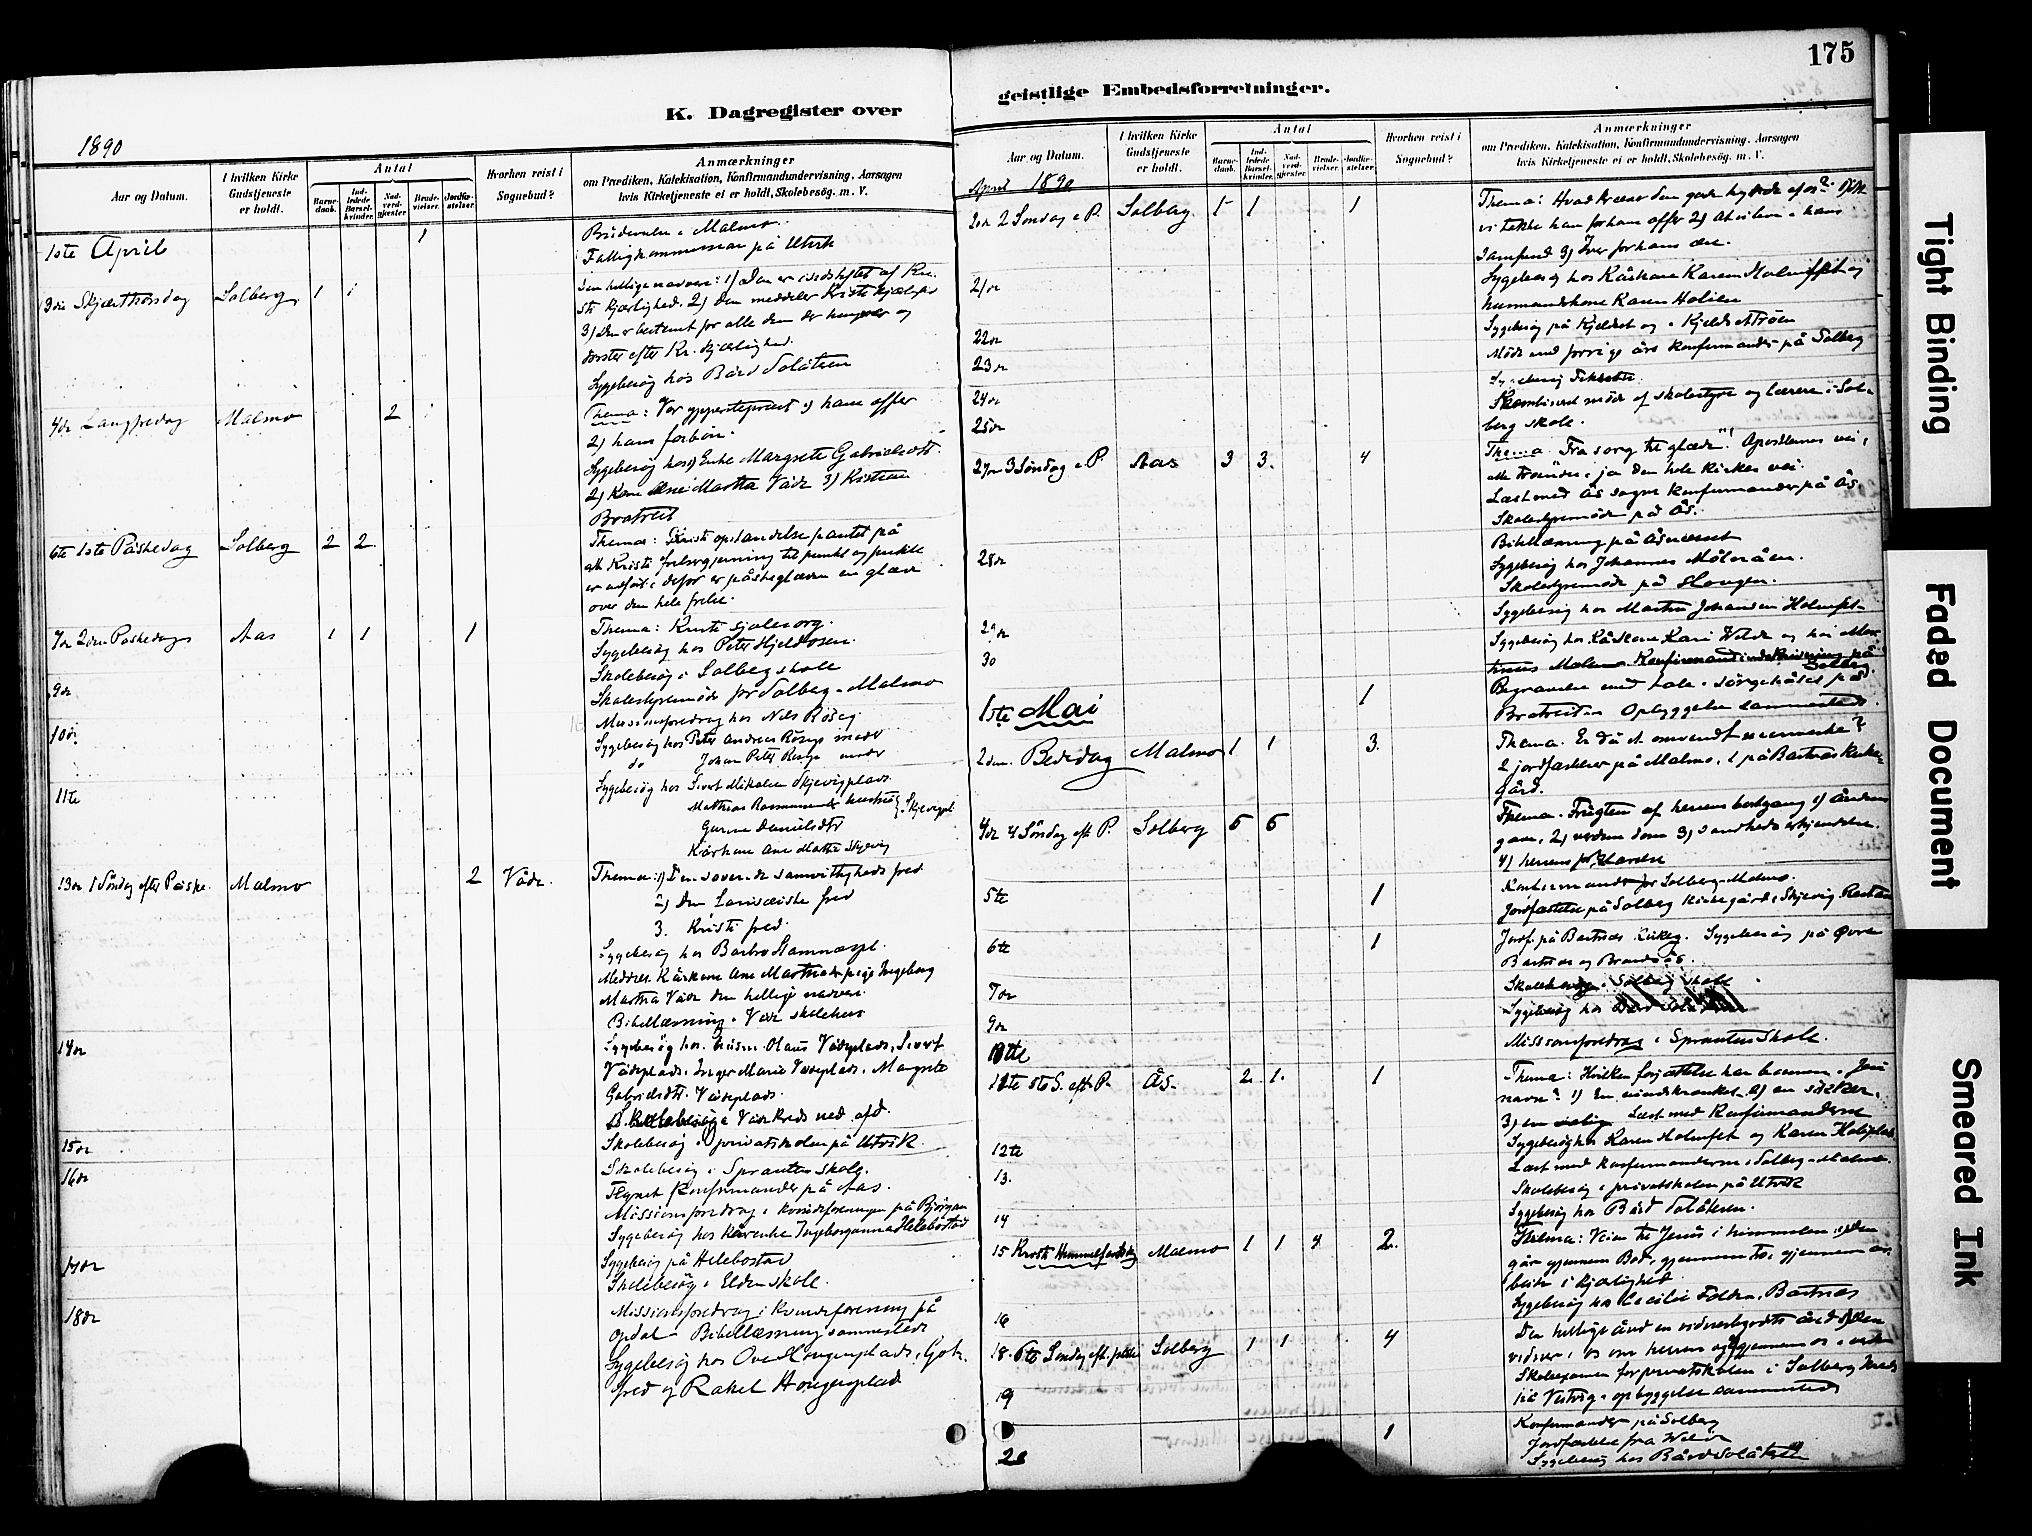 175
K. Dagregister over
geistlige Embedsforretninger.
1890
Aar og Datum.
I hvilken Kirke Gudstjeneste er holdt.
Antal
Barne-daab.
Ind-ledede Barsel-kvinder.
Nad-verd-gjester
Brude-vielser.
Jordfæ-stelser.
Hvorhen reist i Sognebud?
Anmærkninger
om Prædiken, Katekisation, Konfirmandundervisning, Aarsagen
hvis Kirketjeneste ei er holdt, Skolebesög. m. V.
1ste April 1
Brudevielse i Malmo.
Fattigkommission på Utvik
3die Skjærthorsdag Solberg 1 1
Den hellige nadvere: 1) Den er indstiftet af Kri-
sti kjærlighed. 2) Den meddeler Kristi
3) Den er bestemt for alle dem der hungrer og
törster efter Kr. kjærlighed.
Sygebesög hos Bård Solåtsen
4de Langfredag Malmo 2
Thema: Vor ypperstepræst 1) hans offer
2) hans forbön.
Sygebesög hos 1) Enke Margrete Gabrielsdt.
2) Kone Ane Martha Våde 3) Kristian
Bratreit
6te 1ste Påskedag Solberg 2 2
Thema: Kristi opstandelse pantet på
at Kristi frelsergjerning til punkt og prikke
er udfört; derfor er påskeglæden en glæde
over den hele frelse.
7de 2den Påskedag Aas 1 1 1
Thema: Kristi sjælesorg.
Sygebesög hos Peter Hjeldosen.
Skolebesög i Solberg skole
9de
Skolestyremöde for Solberg - Malmo
10de
Missionsforedrag hos Nils Röseg
Sygebesög hos Peter Andreas Rösegs
do Johan Peter Rösegs
11te
Sygebesög hos Sivert Mikalsen Skjevigplads
Mathias Rasmussens hustru } Skjevigpl.
Gurine Danielsdtr
Kårkone Ane Martha Skjevig
13de 1 Söndag efter Påske. Malmo 2 Våde.
Thema: 1) Den sovende samvittigheds fred
2) Den farisæiske fred
3. Kristi fred.
Sygebesög hos Barbro Stamnæspl.
Meddelt Kårkone Ane Martha og pige Ingeborg
Martha Våde den hellige nadvere.
Bibellæsning i Våde skolehus
14de
Sygebesög hos husm. Olaus Vådeplads, Sivert
Vådeplads, Inger Marie Vådeplads, Margrete
Gabrielsdt. Vådeplads.
Skolebesög i Våde kreds ned. afd.
15de
Skolebesög i privatskolen på Utvik
16de
Skolebesög i Sprauten skole.
Konfirmander på Aas.
Missionsforedrag i kvindeforeningen på Björgan
Sygebesög hos Kårenke Ingeborganna Helebostad
17de
Sygebesög på Helebostad
Skolebesög i Elden skole.
18de
Missionsforedrag i kvindeforening på
Opdal - Bibellæsning sammesteds
Sygebesög hos Ove Haugenplads, Got-
fred og Rakel Haugenplad
Aar og Datum.
I hvilken Kirke Gudstjeneste er holdt.
Antal
Barne-daab.
Ind-ledede Barsel-kvinder.
Nad-verd-gjester
Brude-vielser.
Jordfæ-stelser.
Hvorhen reist i Sognebud?
Anmærkninger
om Prædiken, Katekisation, Konfirmandundervisning, Aarsagen
hvis Kirketjeneste ei er holdt, Skolebesög. m. V.
April 1890
20de 2 Söndag e P. Solberg. 1 1 1
Thema: Hvad kræver den gode hyrde af os? 1) At
vi takke ham for hans offer 2) At vi leve i hans
samfund 3) Iver for hans ære.
21de
Sygebesög hos Kårkone Karen Holmset og
husmandskone Karen Holien
22de
Sygebesög på Kjeldset og i Kjeldsettröen
23de
Möde med forrige års konfirmander på Solberg
Sygebesög
24de
Kombineret möde af skolestyre og lærere i Sol-
25de
berg skole.
27de 3 Söndag e P. Aas 3 3. 4
Thema Fra sorg til glæde"! Apostlenes vei,
alle troendes, ja den hele kirkes vei.
Læst med Ås sogns konfirmander på Ås.
Skolestyremöde på Ås.
Bibellæsning på Åsnæsset
28de
Sygebesög hos Johannes Möleråen.
Skolestyremöde på Haugen.
Sygebesög hos Martin Johansen Holmset
29de
Sygebesög hos Kårkone Kari Welde og hos Mar-
30
tinus Malmo Konfirmandindskrivning på Solberg
Begravelse med tale i sörgehuset på
1ste Mai 1
Bratreiten Opbyggelse sammesteds.
2den Bededag Malmo 1 1 3.
Thema. Er du et omvendt menneske?
2 jordfæstelser på Malmo, 1 på Bartnes Kirke-
gård.
4de 4 Söndag eft P. Solberg 5 5
Thema. Frugten af herrens bortgang 1) Åndens
gave, 2) verdens dom 3) sandheds erkjendelse.
4) herrens
Konfirmander for Solberg-Malmo.
5te 1
Jordfæstelse på Solberg Kirkegård, Skjevig
6te 1
Jordf. på Bartnes Kirkeg. Sygebesög på Övre
Bartnes og Brandsås
7de
Solberg skole
9de
Sygebesög hos
10te
Missionsforedrag i Sprauten Skole.
11te 5te S. eft. P. ÅS. 2 1. 1
Thema: Hvilken forjættelse har bönnen i Jesu
navn? 1) En 2) en sikker.
3) en salig Læst med Konfirmanderne
12te
Sygebesög hos Karen Holmset og Karen Holiplads
13.
Læst med konfirmanderne i Solberg - Malmo.
Skolebesög i privatskolen på Utvik
14
Sygebesög hos Bård Solåtsen.
15 Kristi Himmelfartsdag Malmo 1 1 4 2.
Thema: Veien til Jesus i himmelen, den
går gjennem Bod, gjennem tro, gjennem ar-
beide i kjærlighed
16
Sygebesög hos Cecilie Folden, Bartnes
18. 6te Söndag eft. påske Solberg 1 1 4
Den hellige ånd en vidnesbyrdets ånd 1) den
vidner i os om herren og 2) gjennem os i verden
19
Skoleexamen for privatskolen i Solberg kreds
på Vestvig - opbyggelse sammesteds
Konfirmander på Solberg
20 1
Jordfæstelse fra Welde
Sygebesög hos Bård Solåtsen
Tight Binding
Faded Document
Smeared Ink